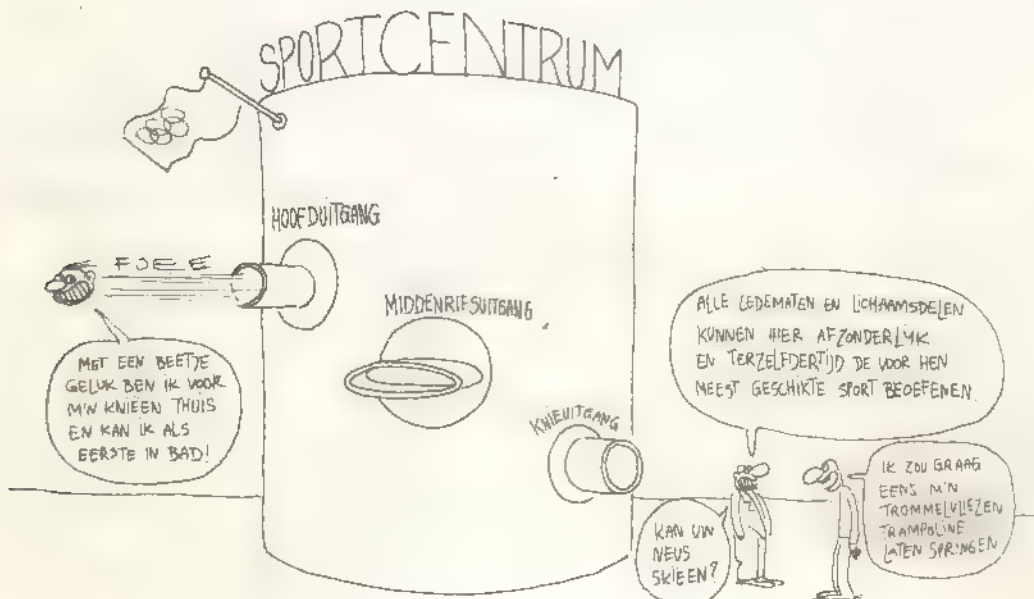 SPORTCENTRUM
HOOFDUITGANG
FJEEE
MIDDENRIFSUITGANG
MET EEN BEETJE
GELUK BEN IK VOOR
M'N KNIEËN THUIS
EN KAN IK ALS
EERSTE IN BAD!
KNIEUITGANG
ALLE LEDEMATEN EN LICHAAMSDELEN
KUNNEN HIER AFZONDERLIJK
EN TERZELFDERTIJD DE VOOR HEN
MEEST GESCHIKTE SPORT BEOEFENEN.
KAN UW
NEUS
SKIEEN?
IK ZOU GRAAG
EENS M'N
TROMMELVLIEZEN
TRAMPOLINE
LATEN SPRINGEN